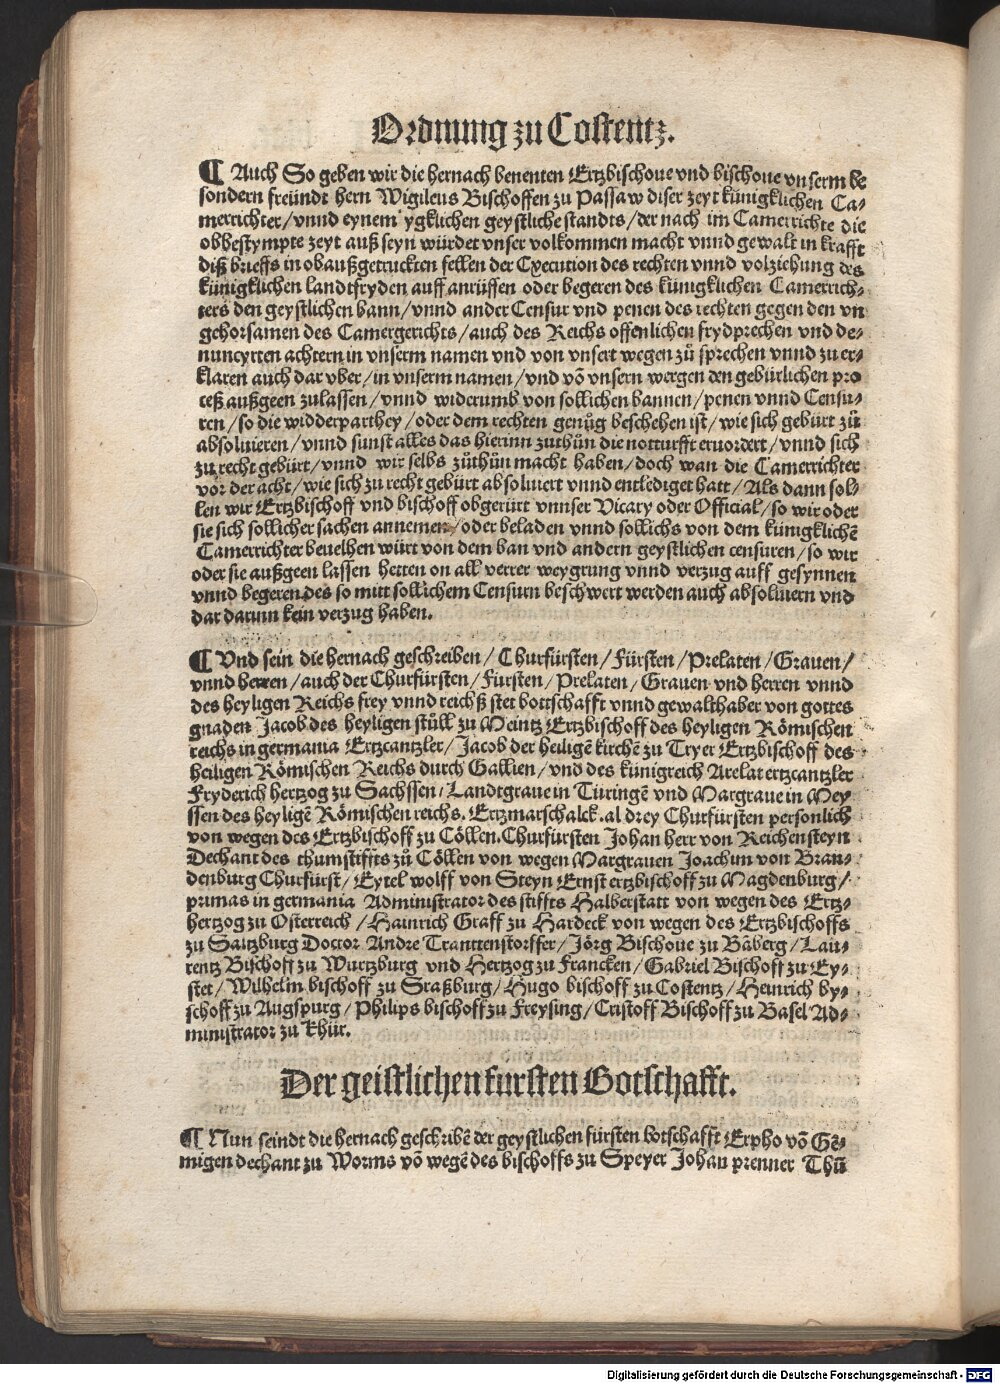 Ordnung zu Costentz.
¶ Auch So geben wir die hernach benenten Ertzbischoue vnd bischoue vnserm be
sondern freündt hern Wigileus Bischoffen zu Passaw diser zeyt künigklichen Ca⸗
merrichter/vnnd eynem ygklichen geystliche standts/der nach im Camerrichte die
obbestympte zeyt auß seyn würdet vnser volkommen macht vnnd gewalt in krafft
diß brieffs in obaußgetruckten fellen der Execution des rechten vnnd volziehung des
künigklichen landtfryden auff anrüffen oder begeren des künigklichen Camerrich⸗
ters den geystlichen bann/vnnd ander Censur vnd penen des rechten gegen den vn
gehorsamen des Camergerichts/auch des Reichs offenlichen frydprechen vnd de⸗
nuncyrten achtern in vnserm namen vnd von vnsert wegen zů sprechen vnnd zu er⸗
klaren auch dar vber/in vnserm namen/vnd võ vnsern wergen den gebürlichen pro
ceß außgeen zulassen/vnnd widerumb von sollichen bannen/penen vnnd Censu⸗
ren/so die widderparthey/oder dem rechten genůg beschehen ist/wie sich gebürt zů
absoluieren/vnnd sunst alles das hierinn zuthün die notturfft eruordert/vnnd sich
zu recht gebürt/vnnd wir selbs zůthün macht haben/doch wan die Camerrichter
vor der acht/wie sich zu recht gebürt absoluiert vnnd entlediget hatt/Als dann sol⸗
len wir Ertzbischoff vnd bischoff obgerürt vnnser Vicary oder Official/so wir oder
sie sich sollicher sachen annemen/oder beladen vnnd sollichs von dem künigklichẽ
Camerrichter beuelhen würt von dem ban vnd andern geystlichen censuren/so wir
oder sie außgeen lassen hetten on all verrer weygrung vnnd verzug auff gesynnen
vnnd begeren des so mitt sollichem Censurn beschwert werden auch absoluiern vnd
dar darunn kein verzug haben.
¶ Vnd sein die hernach geschreiben/Churfürsten/Fürsten/Prelaten/Grauen/
vnnd herren/auch der Churfürsten/Fürsten/Prelaten/Grauen vnd herren vnnd
des heyligen Reichs frey vnnd reichß stet bottschafft vnnd gewalthaber von gottes
gnaden Jacob des heyligen stüll zu Meintz Ertzbischoff des heyligen Römischen
reichs in germania Ertzcantzler/Jacob der heiligẽ kirchẽ zu Tryer Ertzbischoff des
heiligen Römischen Reichs durch Gallien/vnd des künigreich Arelat ertzcantzler
Fryderich hertzog zu Sachssen/Landtgraue in Türingẽ vnd Margraue in Mey
ssen des heyligẽ Römischen reichs. Ertzmarschalck. al drey Churfürsten personlich
von wegen des Ertzbischoff zu Cöllen. Churfürsten Johan herr von Reichensteyn
Dechant des thumstiffts zů Cöllen von wegen Margrauen Joachim von Bran⸗
denburg Churfürst/Eytel wolff von Steyn Ernst ertzbischoff zu Magdenburg/
primas in germania Administrator des stiffts Halberstatt von wegen des Ertz⸗
hertzog zu Osterreich/Hainrich Graff zu Hardeck von wegen des Ertzbischoffs
zu Saltzburg Doctor Andre Tranttenstorffer/Jörg Bischoue zu Bãberg/Lau⸗
rentz Bischoff zu Wurtzburg vnd Hertzog zu Francken/Gabriel Bischoff zu Ey⸗
stet/Wilhelm bischoff zu Sraßburg/Hugo bischoff zu Costentz/Heinrich by⸗
schoff zu Augspurg/Philips bischoff zu Freysing/Cristoff Bischoff zu Basel Ad⸗
ministrator zu Khür.
Der geistlichen fursten Botschafft.
¶ Nun seindt die hernach geschribẽ der geystlichen fürsten botschafft Erpho võ Gẽ⸗
migen dechant zu Worms võ wegẽ des bischoffs zu Speyer Johan prenner Thũ
Digitalisierung gefördert durch die Deutsche Forschungsgemeinschaft - DFG